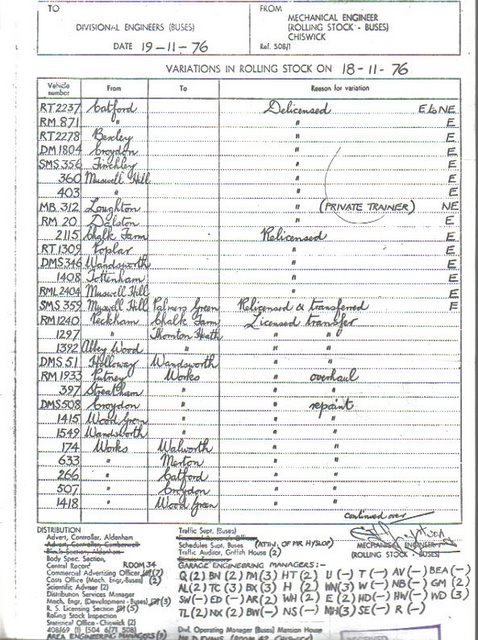 TO
DIVISIONAL ENGINEERS (BUSES)
DATE 19-11-76
FROM
MECHANICAL ENGINEER
(ROLLING STOCK - BUSES)
CHISWICK
Ref. 508/1
VARIATIONS IN ROLLING STOCK ON 18-11-76
Vehicle number From To Reason for variation
RT2237 Catford Delicensed E & NE
RM 871 " " E
RT2278 Bexley " E
DM1804 Croydon " E
SMS 356 Finchley " E
360 Muswell Hill " E
403 " " E
MB 312 Loughton " (PRIVATE TRAINER) NE
RM 20 Dalston " E
2115 Chalk Farm Relicensed E
RT1309 Poplar " E
DMS346 Wandsworth " E
1408 Tottenham " E
RML2404 Muswell Hill " E
SMS 359 Muswell Hill Palmers Green Relicensed & transferred E
RM1240 Peckham Chalk Farm Licensed transfer
1297 " Thornton Heath " "
1392 Abbey Wood " " "
DMS 51 Holloway Wandsworth " "
RM 1933 Putney Works " overhaul
397 Streatham " " "
DMS508 Croydon " " repaint
1415 Wood Green " " "
1549 Wandsworth " " "
174 Works Walworth " "
633 " Merton " "
266 " Catford " "
507 " Croydon " "
1418 " Wood Green " "
continued over
MECHANICAL ENGINEER
(ROLLING STOCK - BUSES)
DISTRIBUTION
Advert. Controller, Aldenham
Body Spec. Section,
Central Record ROOM 34
Commercial Advertising Officer (7)
Costs Office (Mech. Engr. Buses) (2)
Scientific Adviser (2)
Distribution Services Manager
Mech. Engr. (Development - Buses) (3)
R. S. Licensing Section (5)
Rolling Stock Inspection
Statistical Office - Chiswick (2)
AREA ENGINEERING MANAGERS
Traffic Supt. (Buses)
Schedules Supt. Buses (ATTN. OF MR HYSLOP)
Traffic Auditor, Griffith House (2)
GARAGE ENGINEERING MANAGERS:-
Q (2) BN (2) PM (3) HT (2) U (-) T (-) AV (-) BEA (-)
AL (2) TC (3) BX (3) H (2) WN (3) W (-) NB (-) GM (2)
SW (-) ED (-) AR (2) WH (2) E (2) HD (-) HW (-) WD (3)
TL (2) NX (2) BW (-) NS (-) MH (3) SE (-) R (-)
Divl. Operating Manager (Buses) Mansion House